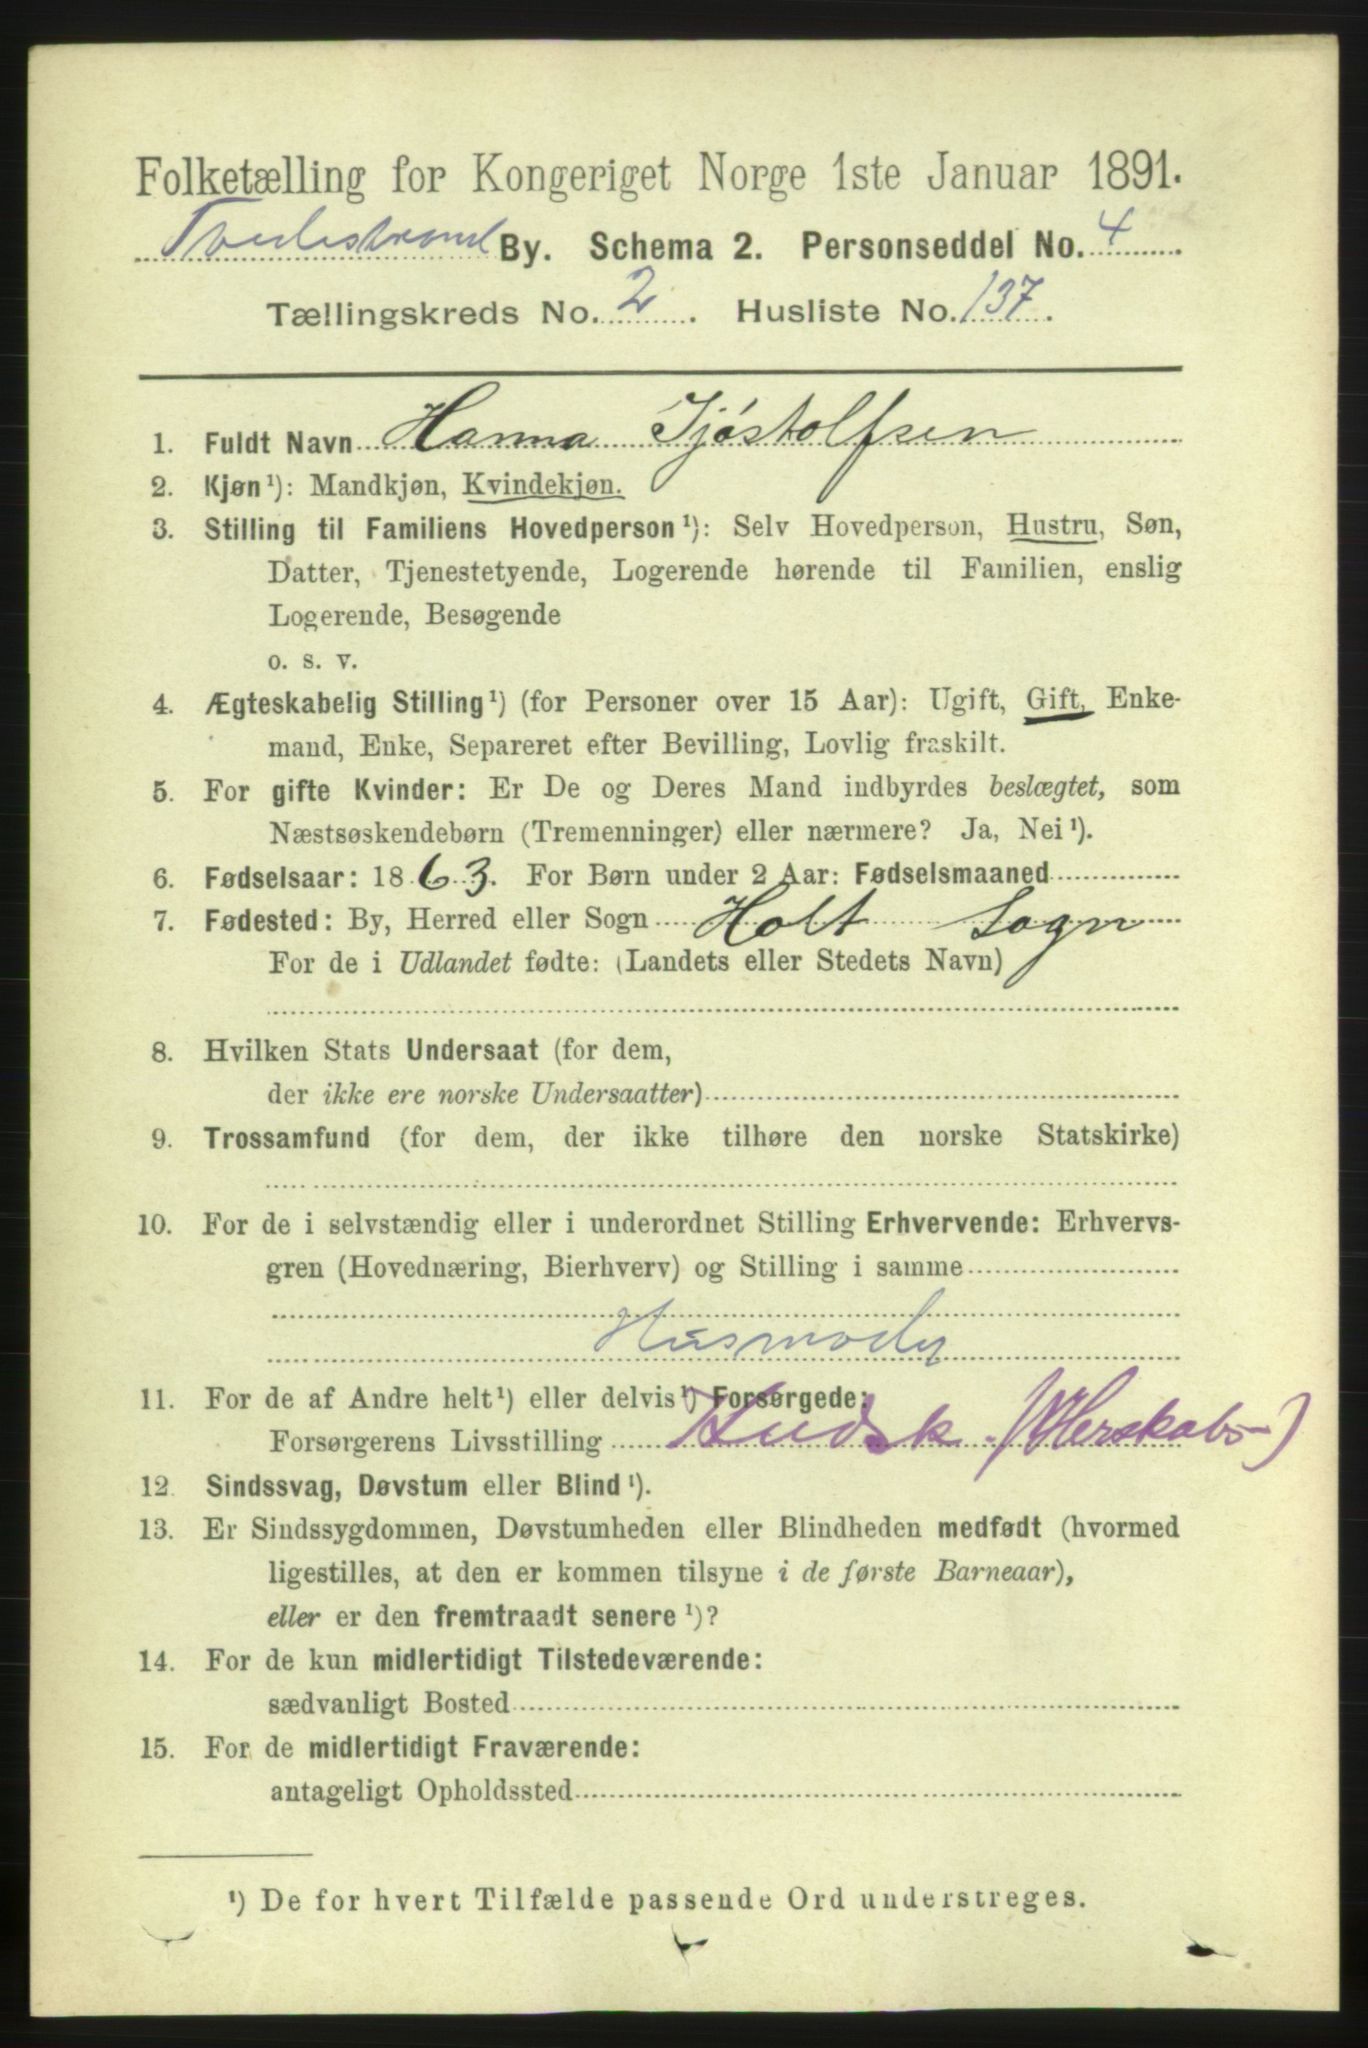 Folketælling for Kongeriget Norge 1ste Januar 1891.
Tvedestrand By. Schema 2. Personseddel No. 4
Tællingskreds No. 2. Husliste No. 137.
1. Fuldt Navn Hanna Tjøstolfsen
2. Kjøn¹): Mandkjøn, Kvindekjøn.
3. Stilling til Familiens Hovedperson¹): Selv Hovedperson, Hustru, Søn,
Datter, Tjenestetyende, Logerende hørende til Familien, enslig
Logerende, Besøgende
o. s. v.
4. Ægteskabelig Stilling¹) (for Personer over 15 Aar): Ugift, Gift, Enke-
mand, Enke, Separeret efter Bevilling, Lovlig fraskilt.
5. For gifte Kvinder: Er De og Deres Mand indbyrdes beslægtet, som
Næstsøskendebørn (Tremenninger) eller nærmere? Ja, Nei¹).
6. Fødselsaar: 1863. For Børn under 2 Aar: Fødselsmaaned
7. Fødested: By, Herred eller Sogn Holt Sogn
For de i Udlandet fødte: (Landets eller Stedets Navn)
8. Hvilken Stats Undersaat (for dem,
der ikke ere norske Undersaatter)
9. Trossamfund (for dem, der ikke tilhøre den norske Statskirke)
10. For de i selvstændig eller i underordnet Stilling Erhvervende: Erhvervs-
gren (Hovednæring, Bierhverv) og Stilling i samme
Husmoder
11. For de af Andre helt¹) eller delvis¹) Forsørgede:
Forsørgerens Livsstilling
12. Sindssvag, Døvstum eller Blind¹).
13. Er Sindssygdommen, Døvstumheden eller Blindheden medfødt (hvormed
ligestilles, at den er kommen tilsyne i de første Barneaar),
eller er den fremtraadt senere¹)?
14. For de kun midlertidigt Tilstedeværende:
sædvanligt Bosted
15. For de midlertidigt Fraværende:
antageligt Opholdssted
¹) De for hvert Tilfælde passende Ord understreges.